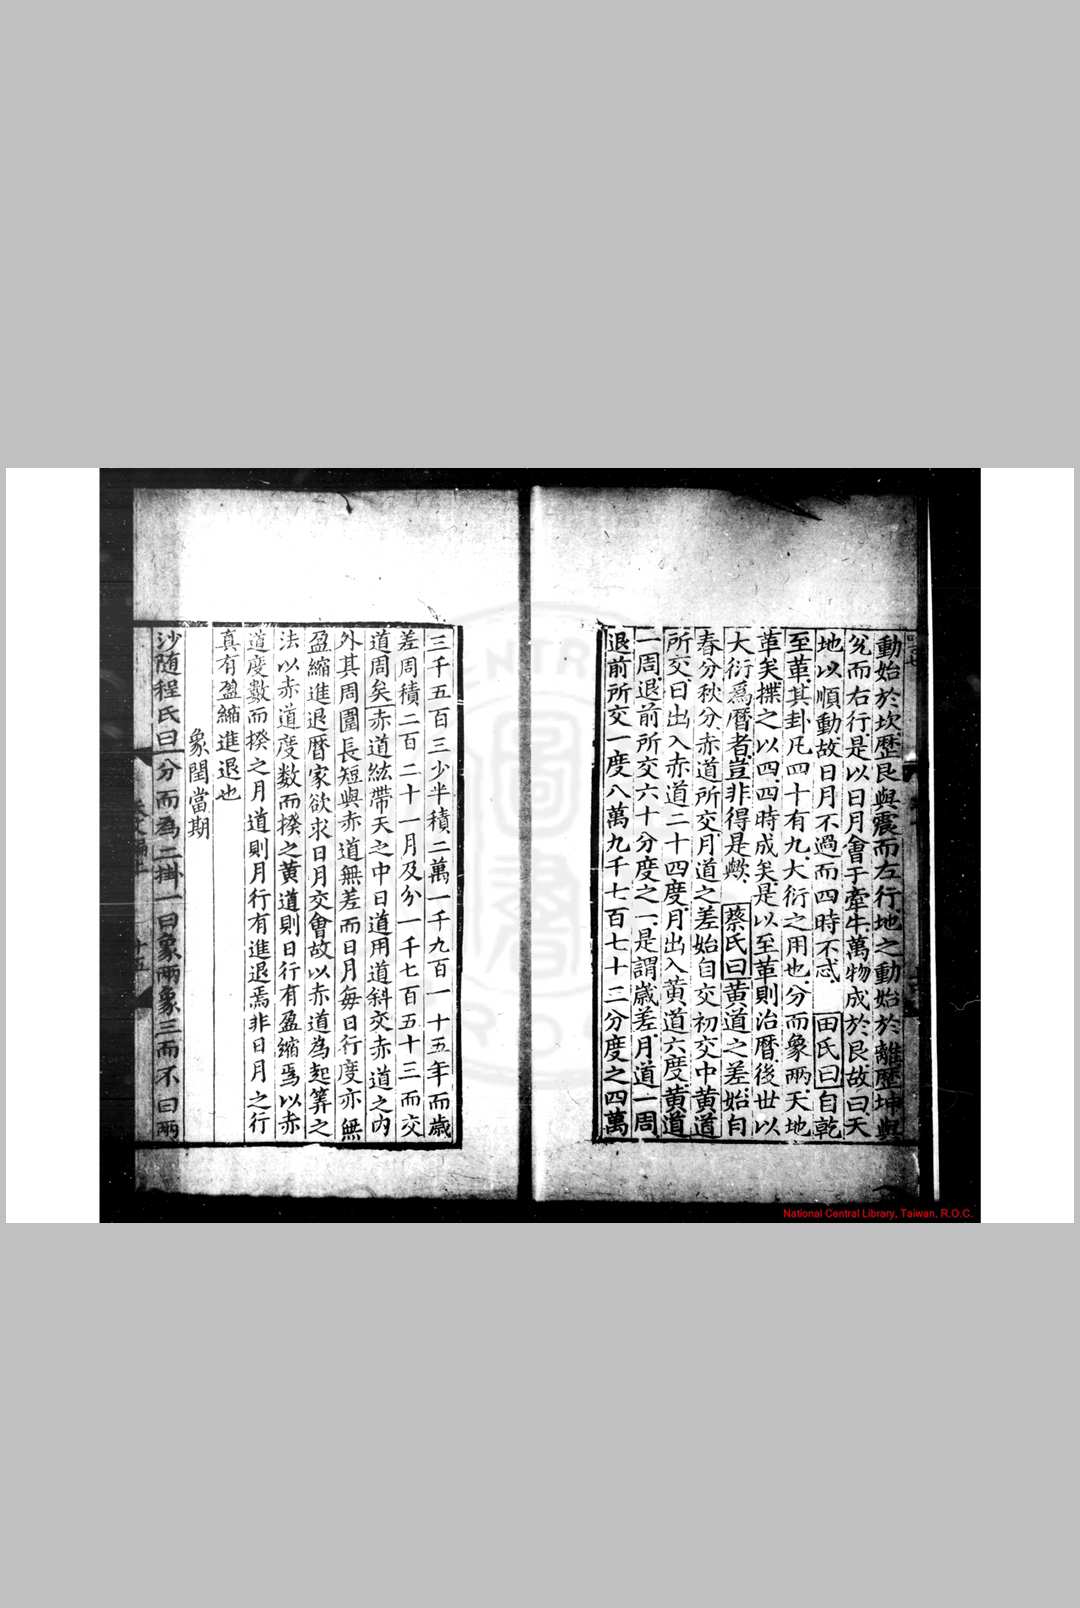 動始於坎歷艮與震而左行地之動始於離歷坤與
兊而右行是以日月會于牽牛萬物成於艮故曰天
地以順動故日月不過而四時不忒 田氏曰自乾
至革其卦凡四十有九大衍之用也分而象兩天地
革矣揲之以四四時成矣是以至革則治曆後世以
大衍爲曆者豈非得是歟 蔡氏曰黄道之差始自
春分秋分赤道所交月道之差始自交初交中黄道
所交日出入赤道二十四度月出入黄道六度黄道
一周退前所交六十分度之一是謂歲差月道一周
退前所交一度八萬九千七百七十三分度之四萬
三千五百三少半積二萬一千九百一十五年而歲
差周積二百二十一月及分一千七百五十三而交
道周矣赤道絃帶天之中日道用道斜交赤道之内
外其周圍長短與赤道無差而日月每日行度亦無
盈縮進退曆家欲求日月交會故以赤道為起筭之
法以赤道度数而揆之黄道則日行有盈縮焉以赤
道度數而揆之月道則月行有進退焉非日月之行
真有盈縮進退也
象閏當期
沙随程氏曰分而為二掛一曰象兩象三而不曰兩
National Central Library, Taiwan, R.O.C.